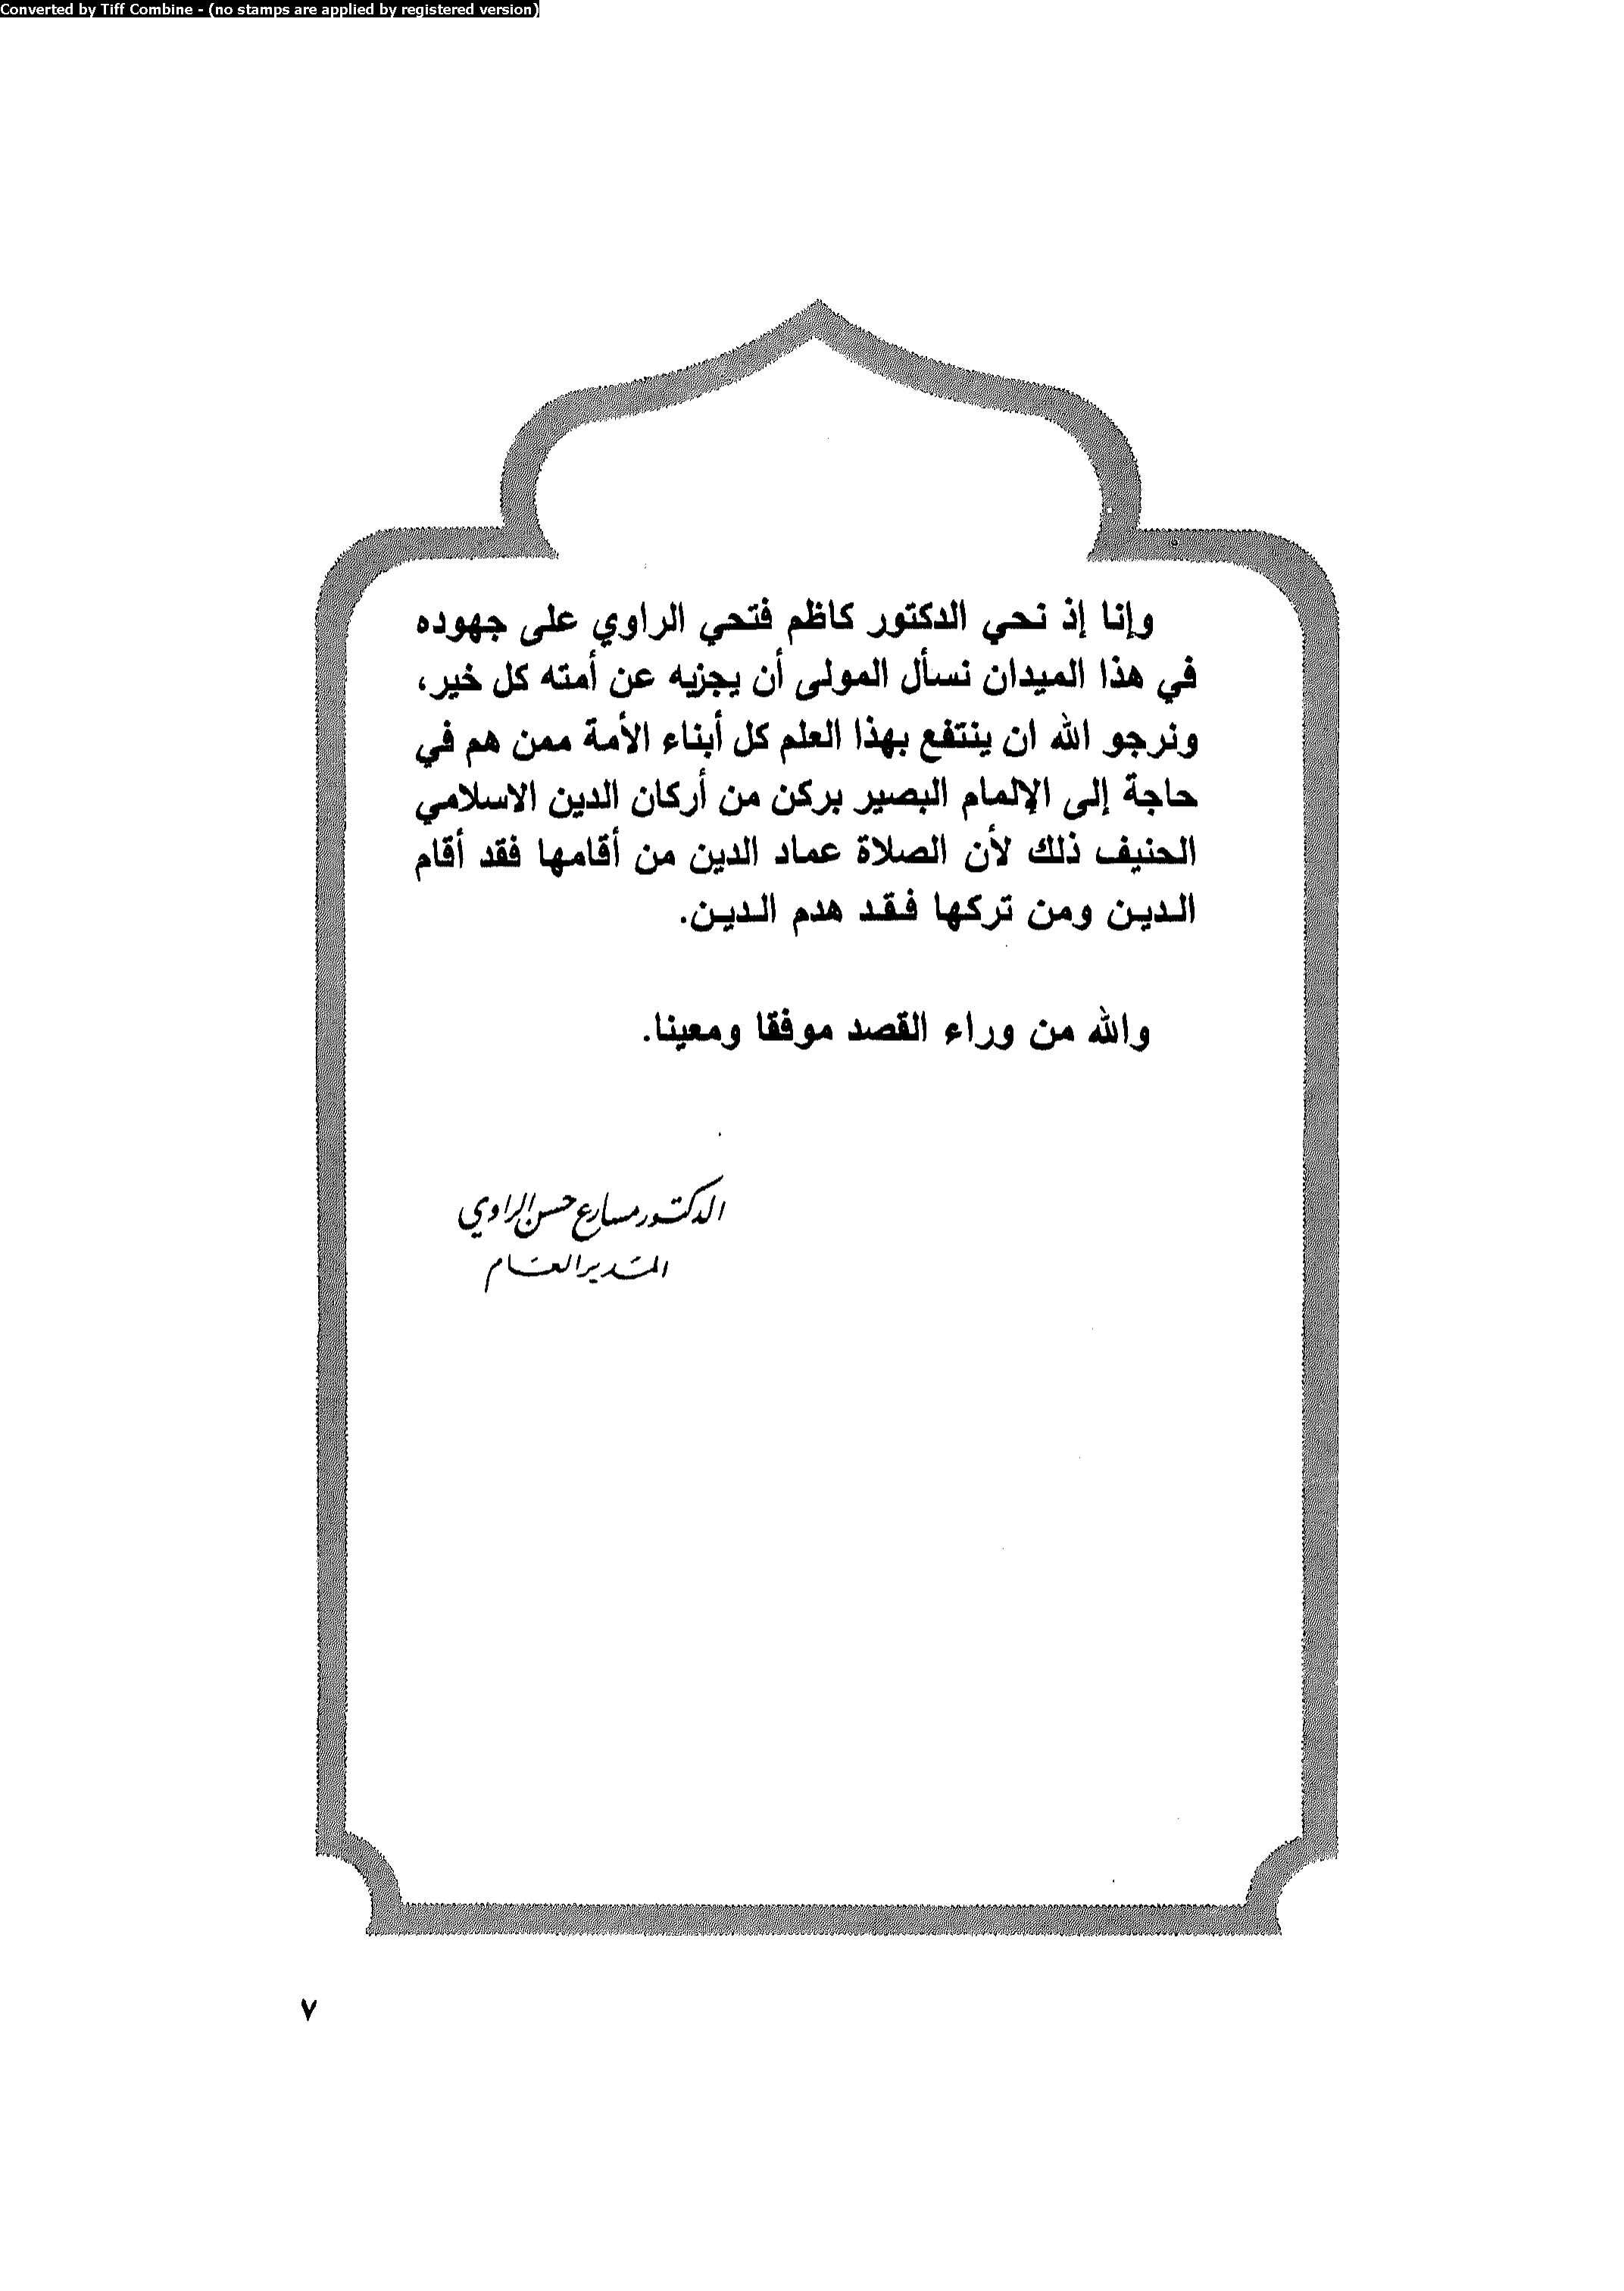 Converted by Tiff Combine - (no stamps are applied by registered version)
وإنا إذ نحي الدكتور كاظم فتحي الراوي على جهوده
في هذا الميدان نسأل المولى أن يجزيه عن أمته كل خير،
ونرجو الله ان ينتفع بهذا العلم كل أبناء الأمة ممن هم في
حاجة إلى الإلمام البصير بركن من أركان الدين الاسلامي
الحنيف ذلك لأن الصلاة عماد الدين من أقامها فقد أقام
الدين ومن تركها فقد هدم الدين.
والله من وراء القصد موفقا ومعينا.
الدكتور مسارع حسن الراوي
المدير العام
٧